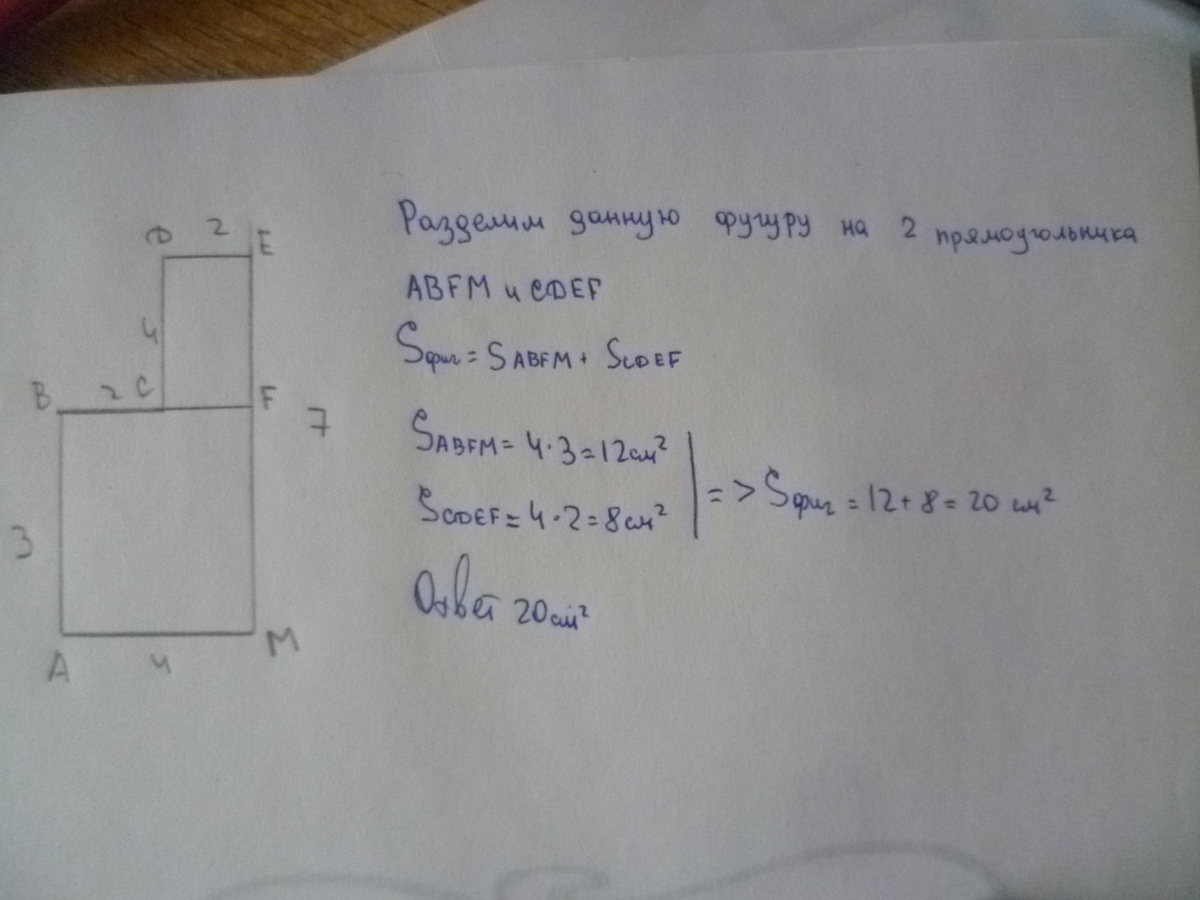 D 2 E
4
B 2 C F
7
3
A 4 M
Разделим данную фугуру на 2 прямоугольника
ABFM и CDEF
Sфиг = SABFM + SCDEF
SABFM = 4·3=12см²
SCDEF = 4·2=8см²
=> Sфиг = 12+8=20 см²
Ответ 20см²